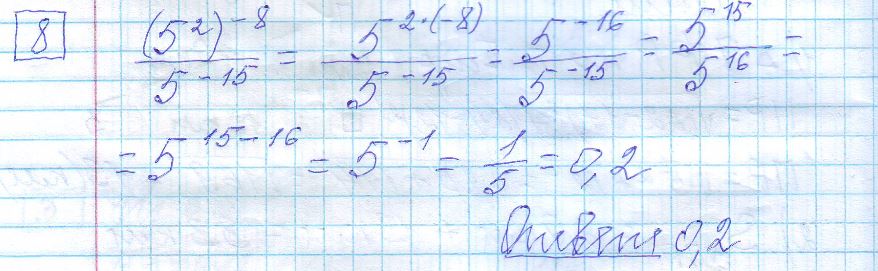 8 (5²)⁻⁸/5⁻¹⁵ = 5²·⁽⁻⁸⁾/5⁻¹⁵ = 5⁻¹⁶/5⁻¹⁵ = 5¹⁵/5¹⁶ =
= 5¹⁵⁻¹⁶ = 5⁻¹ = 1/5 = 0,2
Ответ 0,2